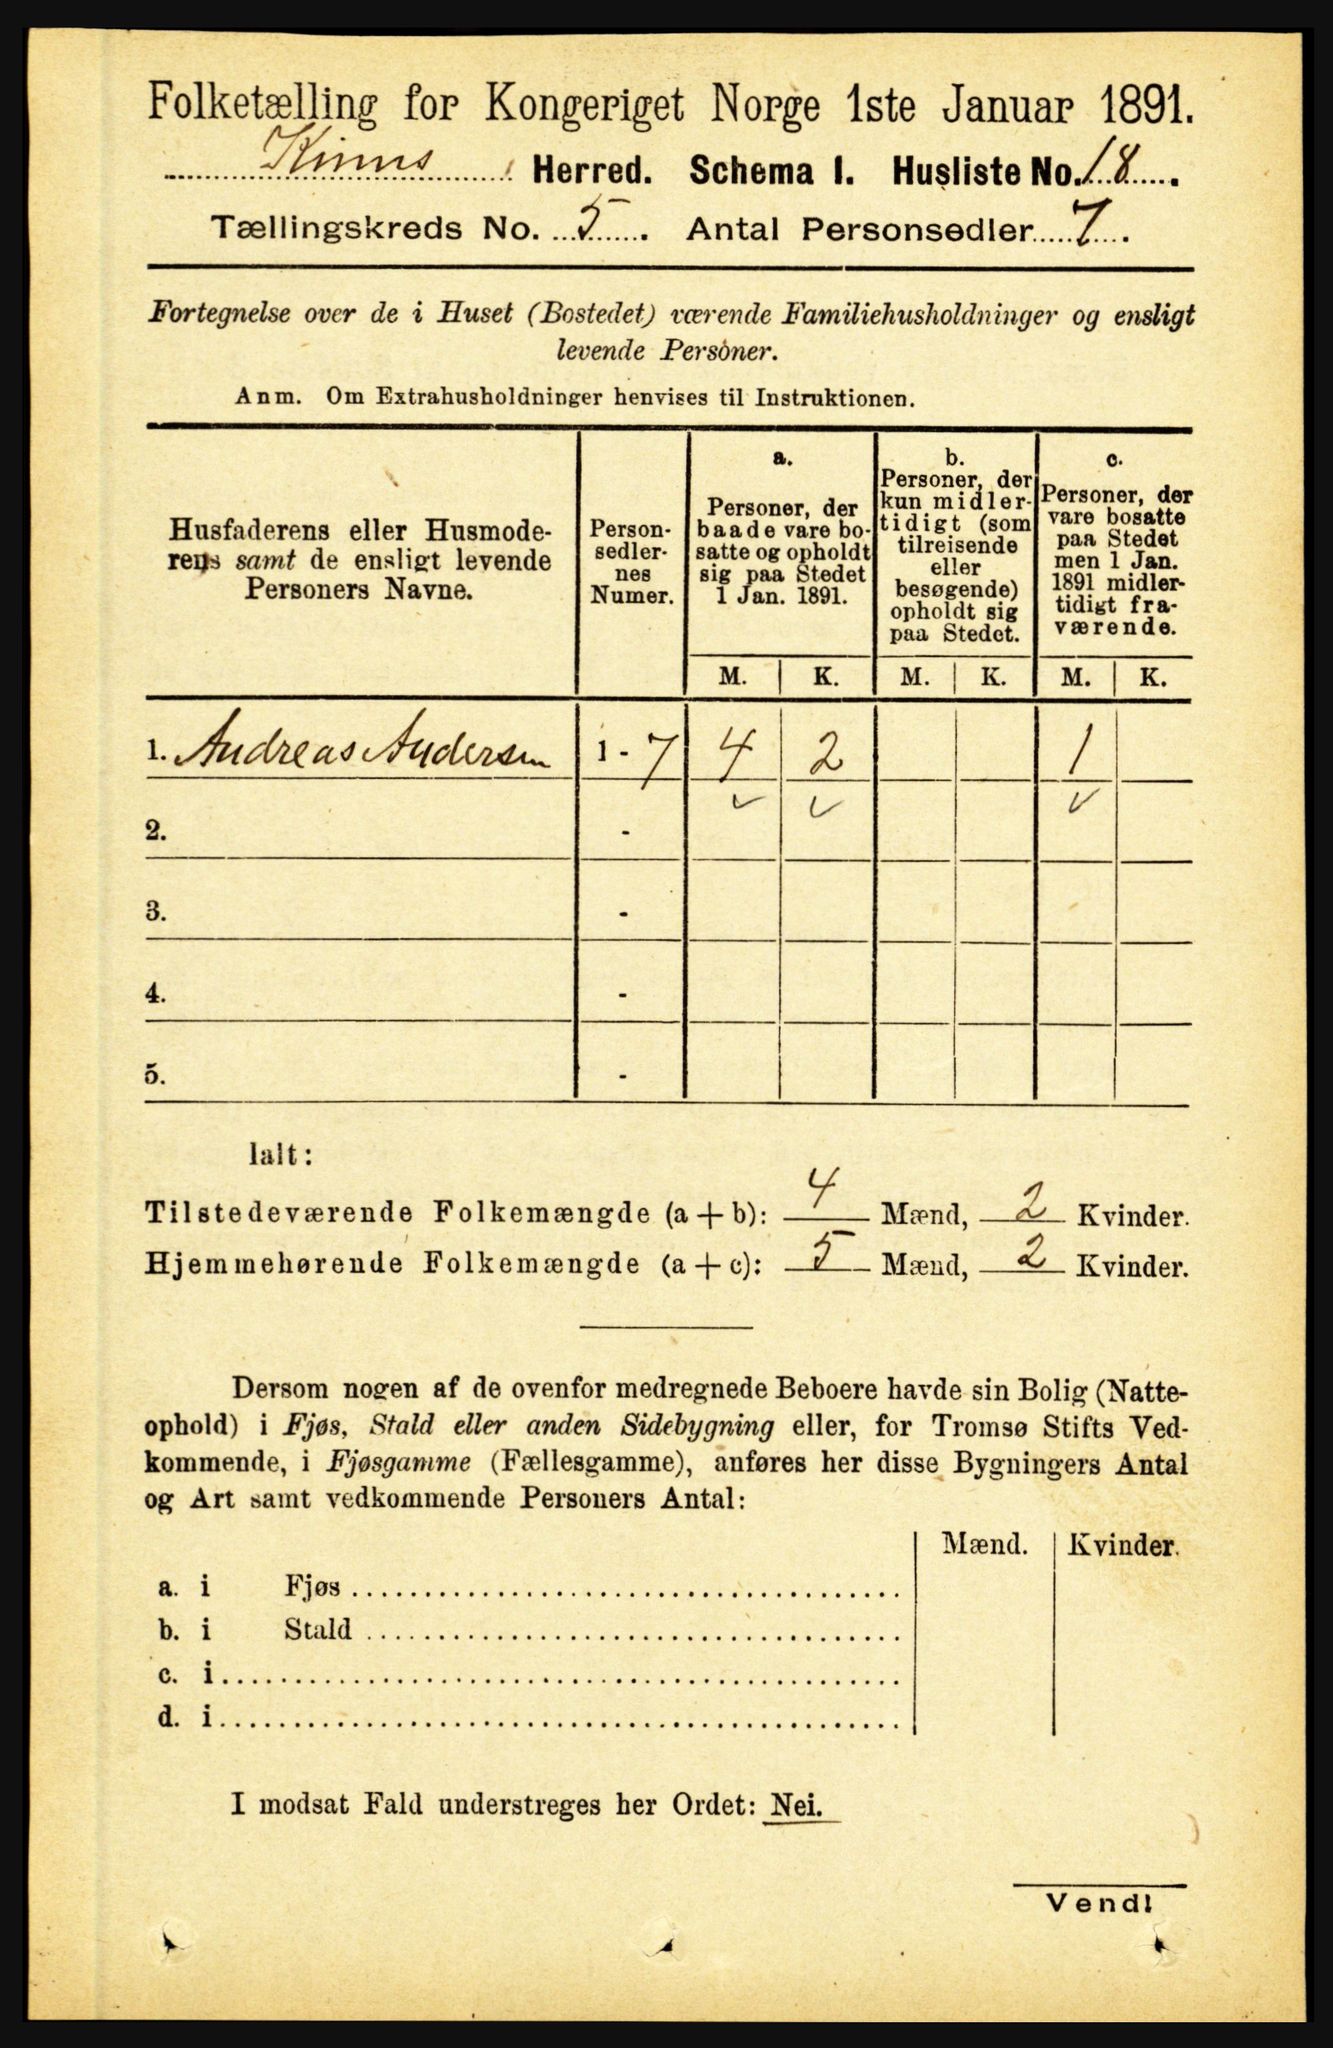 Folketælling for Kongeriget Norge 1ste Januar 1891.
Kinns Herred. Schema I. Husliste No. 18.
Tællingskreds No. 5. Antal Personsedler 7.
Fortegnelse over de i Huset (Bostedet) værende Familiehusholdninger og ensligt
levende Personer.
Anm. Om Extrahusholdninger henvises til Instruktionen.
Husfaderens eller Husmode-
rens samt de ensligt levende
Personers Navne.
Person-
sedler-
nes
Numer.
a.
Personer, der
baade vare bo-
satte og opholdt
sig paa Stedet
1 Jan. 1891.
b.
Personer, der
kun midler-
tidigt (som
tilreisende
eller
besøgende)
opholdt sig
paa Stedet.
c.
Personer, der
vare bosatte
paa Stedet
men 1 Jan.
1891 midler-
tidigt fra-
værende.
M. K. M. K. M. K.
1. Andreas Andersen 1 - 7 4 2 1
2. -
3. -
4. -
5. -
Ialt:
Tilstedeværende Folkemængde (a + b): 4 Mænd, 2 Kvinder.
Hjemmehørende Folkemængde (a + c): 5 Mænd, 2 Kvinder.
Dersom nogen af de ovenfor medregnede Beboere havde sin Bolig (Natte-
ophold) i Fjøs, Stald eller anden Sidebygning eller, for Tromsø Stifts Ved-
kommende, i Fjøsgamme (Fællesgamme), anføres her disse Bygningers Antal
og Art samt vedkommende Personers Antal:
Mænd. Kvinder.
a. i Fjøs
b. i Stald
c. i
d. i
I modsat Fald understreges her Ordet: Nei.
Vend!